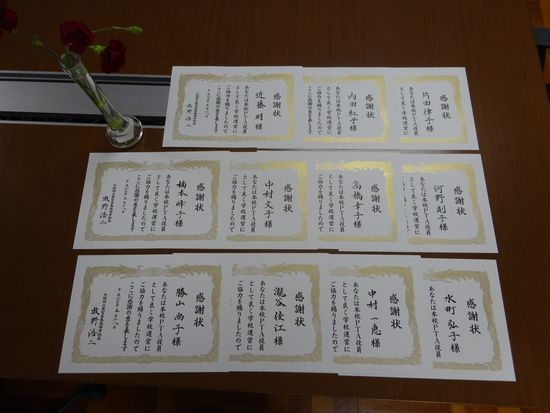 感謝状
片田律子様
あなたは本校PTA役員
感謝状
内田紅子様
あなたは本校PTA役員
として良く学校運営に
感謝状
近藤明様
あなたは本校PTA役員
として良く学校運営に
ご協力を賜りましたので
ここに感謝の意を表します
牧野浩二
感謝状
河野則子様
あなたは本校PTA役員
感謝状
高橋幸子様
あなたは本校PTA役員
として良く学校運営に
感謝状
中村文子様
あなたは本校PTA役員
として良く学校運営に
感謝状
楠本峰子様
あなたは本校PTA役員
として良く学校運営に
ご協力を賜りましたので
ここに感謝の意を表します
牧野浩二
感謝状
水町弘子様
あなたは本校PTA役員
感謝状
中村一恵様
あなたは本校PTA役員
として良く学校運営に
ご協力を賜りましたので
感謝状
瀧谷佳江様
あなたは本校PTA役員
として良く学校運営に
ご協力を賜りましたので
感謝状
勝山尚子様
あなたは本校PTA役員
として良く学校運営に
ご協力を賜りましたので
ここに感謝の意を表します
牧野浩二